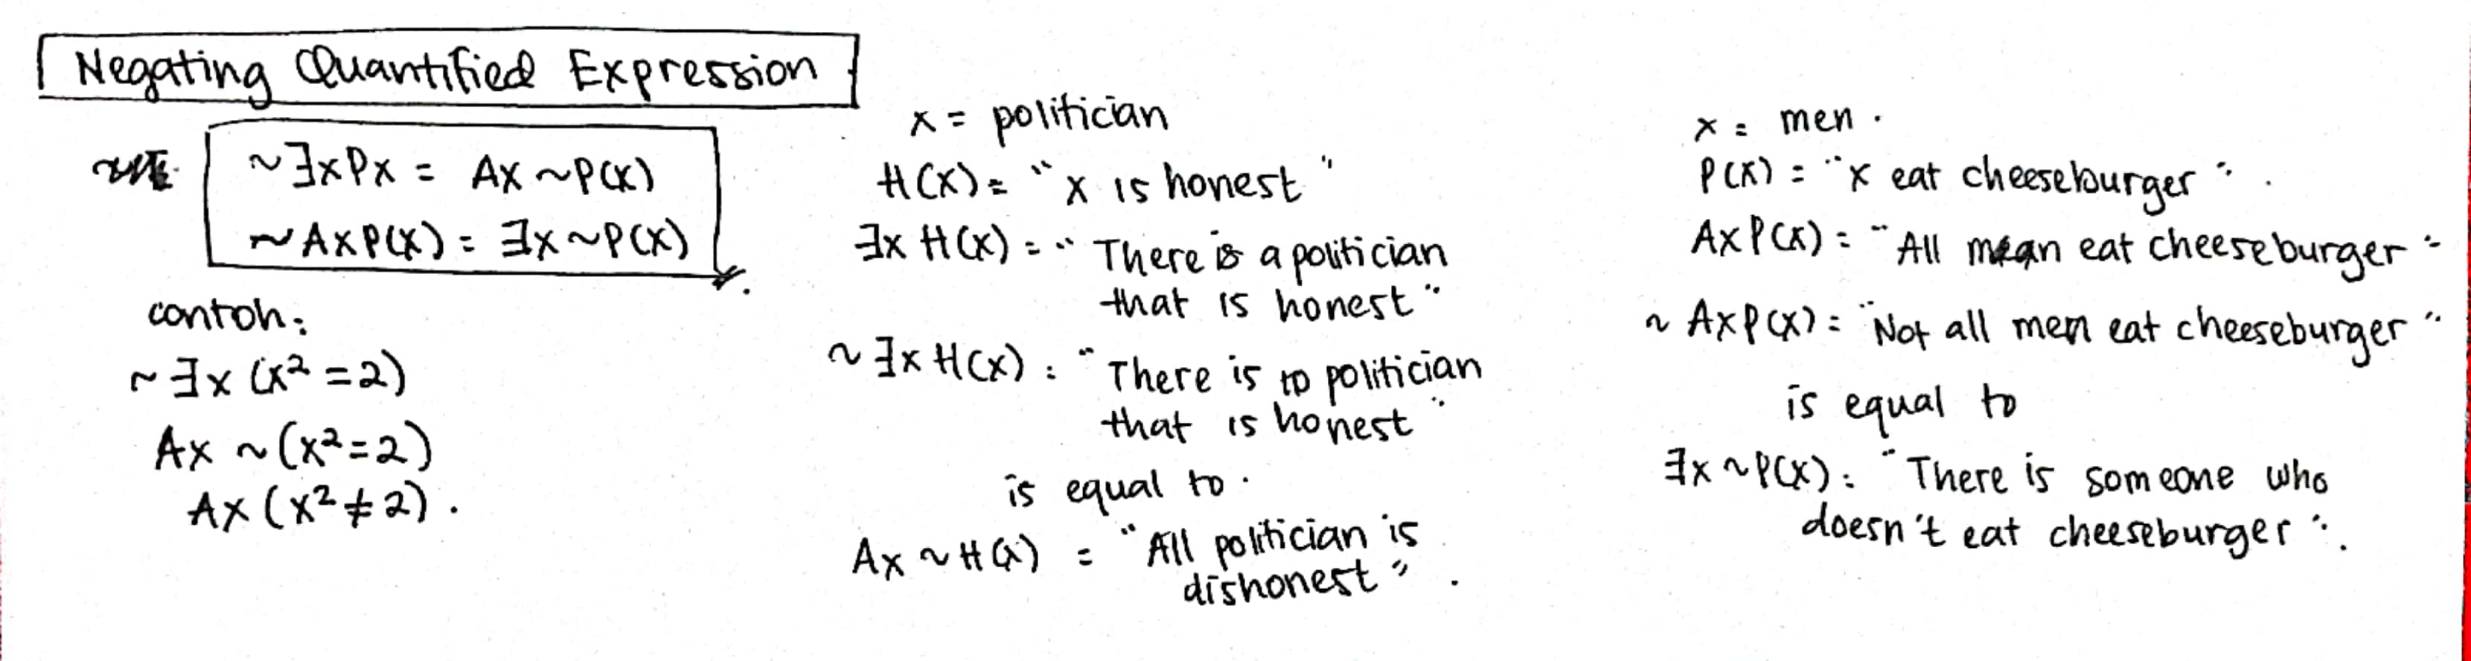 Negating Quantified Expression
~∃xPx = Ax ~P(x)
~AxP(x) = ∃x ~P(x)
contoh:
~∃x (x² = 2)
Ax ~ (x² = 2)
Ax (x² ≠ 2).
x = politician
H(x) = "x is honest"
∃x H(x) = "There is a politician
that is honest"
~∃x H(x) = "There is no politician
that is honest"
is equal to.
Ax ~H(x) = "All politician is
dishonest".
x = men.
P(x) = "x eat cheeseburger".
AxP(x) = "All mean eat cheeseburger"
~AxP(x) = "Not all men eat cheeseburger"
is equal to
∃x ~P(x) = "There is someone who
doesn't eat cheeseburger".